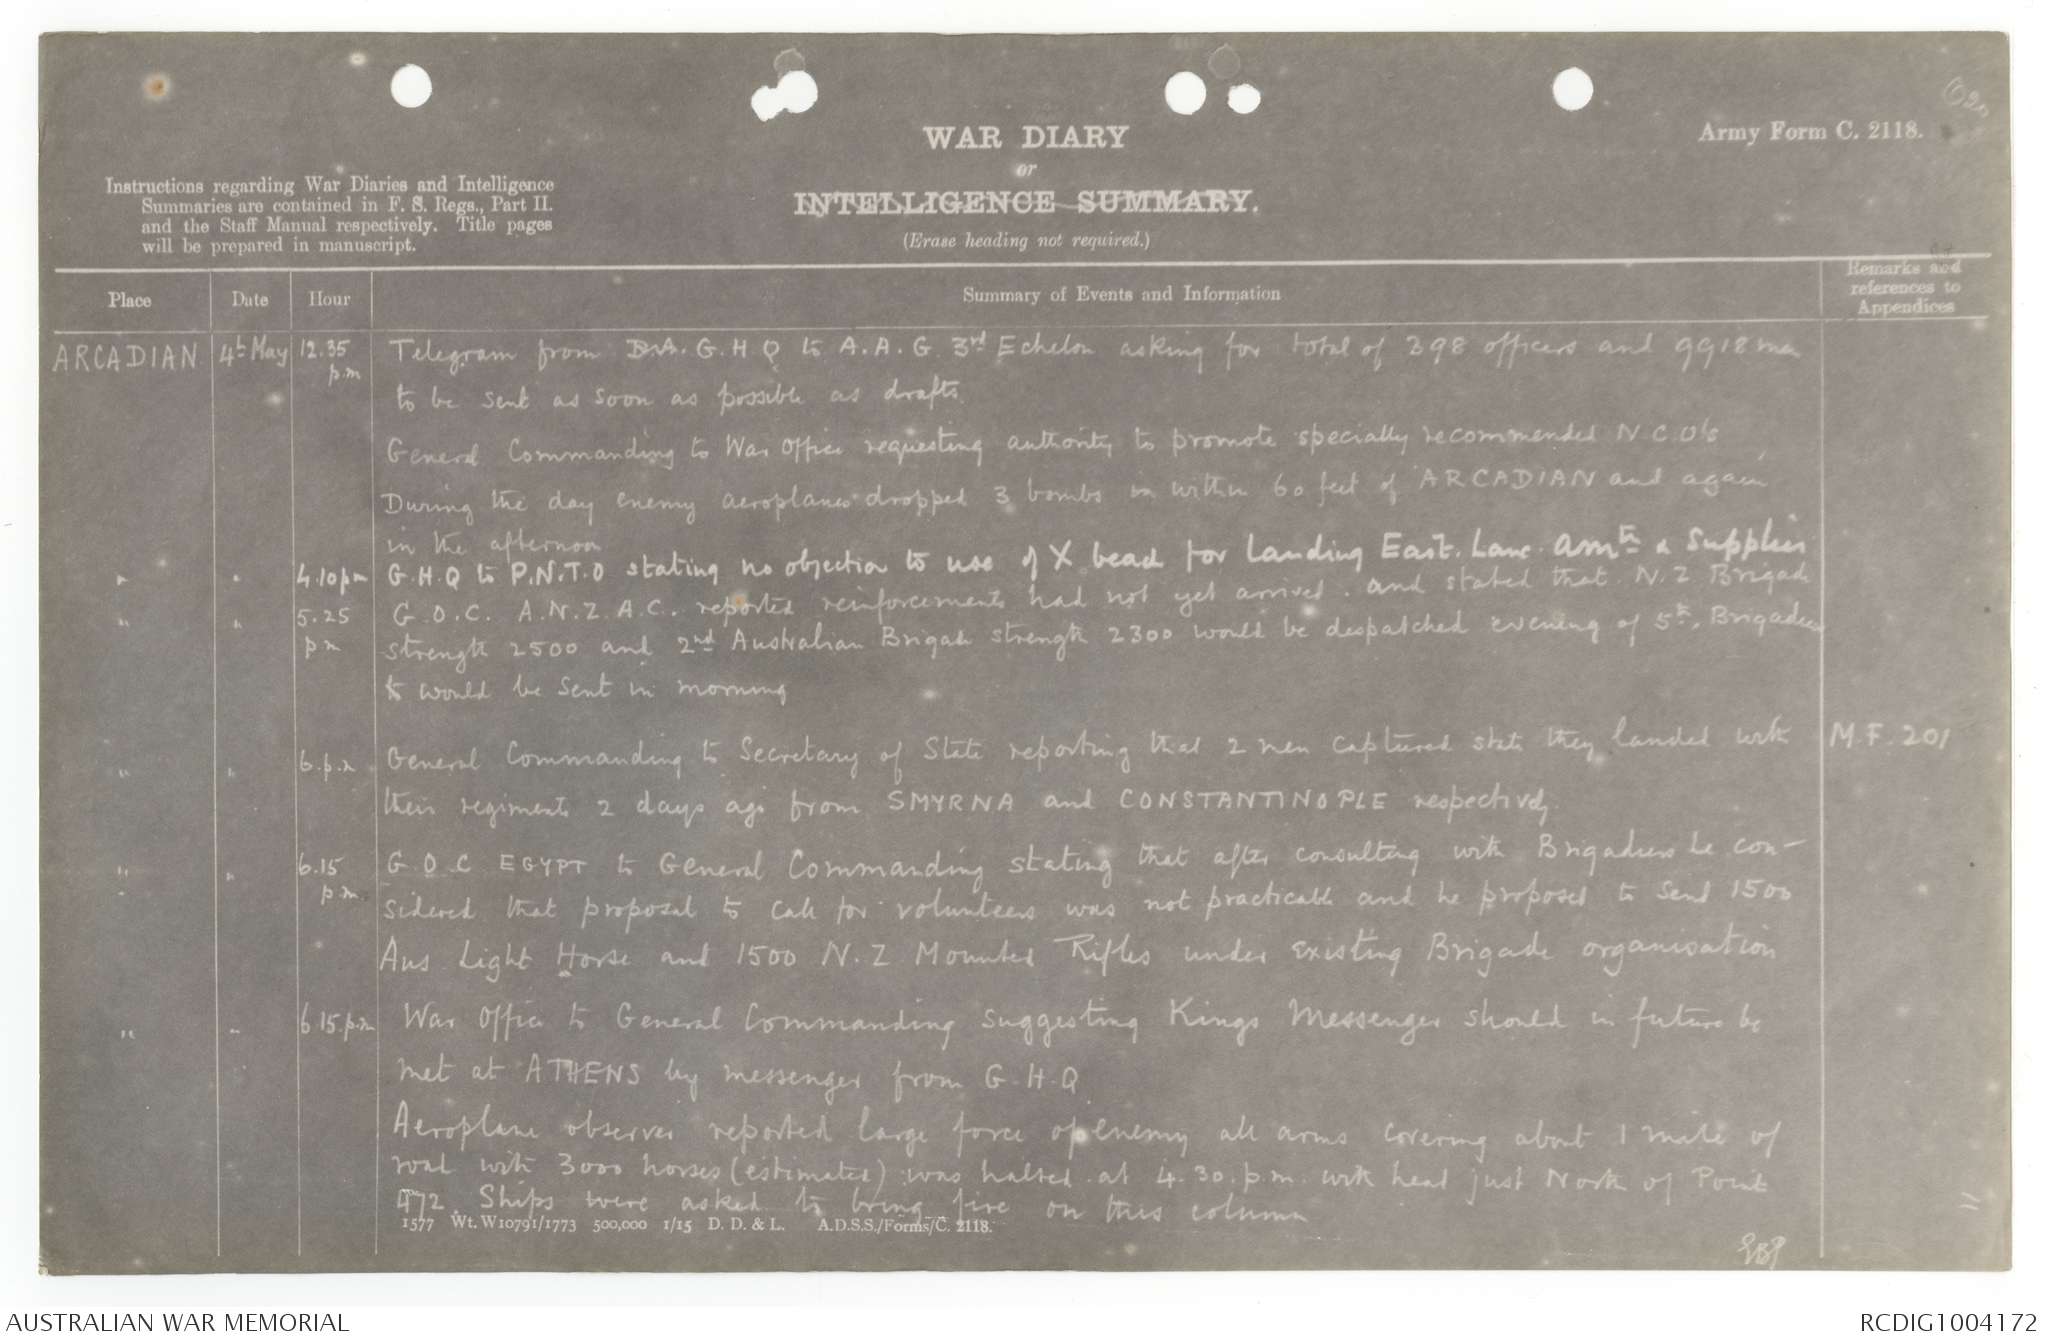 WAR DIARY
or
INTELLIGENCE SUMMARY.
(Erase heading not required.)
Army Form C. 2118.
Instructions regarding War Diaries and Intelligence
Summaries are contained in F. S. Regs., Part II.
and the Staff Manual respectively. Title pages
will be prepared in manuscript.
Place Date Hour Summary of Events and Information Remarks and references to Appendices
ARCADIAN 4th May 12.35 p.m Telegram from G.H.Q to A.A.G. 3rd Echelon asking for total of 398 officers and 9918 men
to be sent as soon as possible as drafts.
General Commanding to War Office requesting authority to promote specially recommended N.C.O's
During the day enemy aeroplanes dropped 3 bombs in within 60 feet of ARCADIAN and again
in the afternoon
" " 4.10pm G.H.Q to P.N.T.O stating no objection to use of X beach for landing East. Lanc. Amtn & Supplies
" " 5.25 pm G.O.C. A.N.Z.A.C. reported reinforcements had not yet arrived. and stated that N.Z Brigade
strength 2500 and 2nd Australian Brigade strength 2300 would be despatched evening of 5th. Brigadiers
to would be sent in morning
" " 6.p.m General Commanding to Secretary of State reporting that 2 men captured state they landed with M.F. 201
their regiments 2 days ago from SMYRNA and CONSTANTINOPLE respectively.
" " 6.15 p.m. G.O.C EGYPT to General Commanding stating that after consulting with Brigadiers he con-
sidered that proposal to call for volunteers was not practicable and he proposed to send 1500
Aus Light Horse and 1500 N.Z Mounted Rifles under existing Brigade organisation
" " 6 15.p.m War Office to General Commanding suggesting Kings Messenger should in future be
met at ATHENS by messenger from G.H.Q
Aeroplane observer reported large force of enemy all arms covering about 1 mile of
road with 3000 horses (estimated) was halted at 4.30.p.m. with head just North of Point
472. Ships were asked to bring fire on this column
1577 Wt. W10791/1773 500,000 1/15 D. D. & L. A.D.S.S./Forms/C. 2118.
AUSTRALIAN WAR MEMORIAL
RCDIG1004172